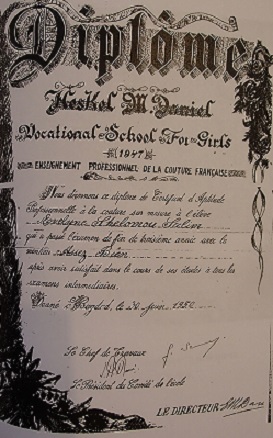 Diplôme
Heskel M. Daniel
Vocational School For Girls
1947
ENSEIGNEMENT PROFESSIONNEL DE LA COUTURE FRANÇAISE
Nous donnons ce diplôme de Certificat d'Aptitude
Professionnelle à la couture sur mesure à l'élève
qui a passé l'examen de fin de troisième année avec la
mention Assez Bien
après avoir satisfait dans le cours de ses études à tous les
examens intermédiaires.
Donné à Bagdad, le
Le Chef de Travaux
Le Président du Comité de l'école
LE DIRECTEUR